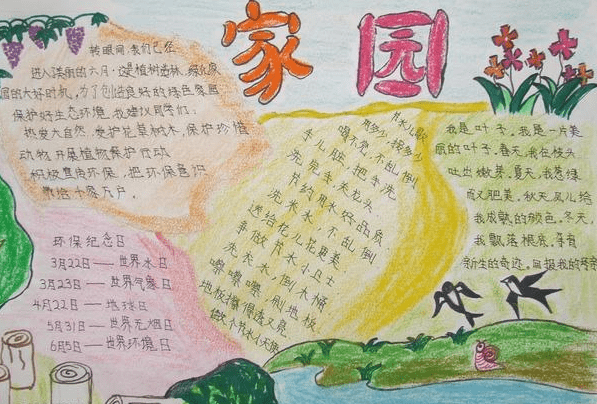 家园
转眼间，我们已经
进入深刚的六月，这是植树造林、绿化家
园的大好时机，为了创造良好的绿色家园
保护好生态环境，我建议同学们：
热爱大自然，爱护花草树木，保护珍惜
动物，开展植物保护行动
积极宣传环保，把环保意识
带给千家万户。
环保纪念日
3月22日——世界水日
3月23日——世界气象日
4月22日——地球日
5月31日——世界无烟日
6月5日——世界环境日
节水儿歌
用多少，接多少
喝不完，不乱倒
手儿脏，把手洗
洗完手，关龙头
节约用水好品质
洗米水，不乱倒
送给花儿花更美
争做节水小卫士
洗衣水，倒大桶
唰唰唰，刷地板
地板擦得透又亮
做个节水小天使
我是叶子。我是一片美
丽的叶子。春天，我在枝头
吐出嫩芽。夏天，我葱绿
而又肥美。秋天，风儿给
我成熟的颜色。冬天，
我飘落根底，孕育
新生的奇迹。回报我的母亲